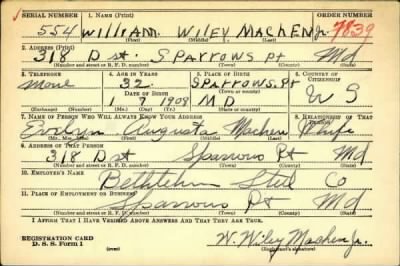 SERIAL NUMBER 1. NAME (Print) ORDER NUMBER
554 William Wiley Machen Jr. 7839
(First) (Middle) (Last)
2. ADDRESS (Print)
318 D st. Sparrows Pt Md
(Number and street or R. F. D. number) (Town) (County) (State)
3. TELEPHONE 4. AGE IN YEARS 5. PLACE OF BIRTH 6. COUNTRY OF CITIZENSHIP
None 32 Sparrows. Pt
DATE OF BIRTH (Town or county)
1908 MD U S
(Exchange) (Number) (Mo.) (Day) (Yr.) (State or country)
7. NAME OF PERSON WHO WILL ALWAYS KNOW YOUR ADDRESS 8. RELATIONSHIP OF THAT PERSON
Evelyn Augusta Machen Wife
(Mr., Mrs., Miss) (First) (Middle) (Last)
9. ADDRESS OF THAT PERSON
318 D st Sparrows Pt Md
(Number and street or R. F. D. number) (Town) (County) (State)
10. EMPLOYER'S NAME
Bethlehem Steel Co
11. PLACE OF EMPLOYMENT OR BUSINESS
Sparrows Pt Md
(Number and street or R. F. D. number) (Town) (County) (State)
I AFFIRM THAT I HAVE VERIFIED ABOVE ANSWERS AND THAT THEY ARE TRUE.
REGISTRATION CARD
D. S. S. Form 1 (over) W. Wiley Machen Jr.
(Registrant's signature)